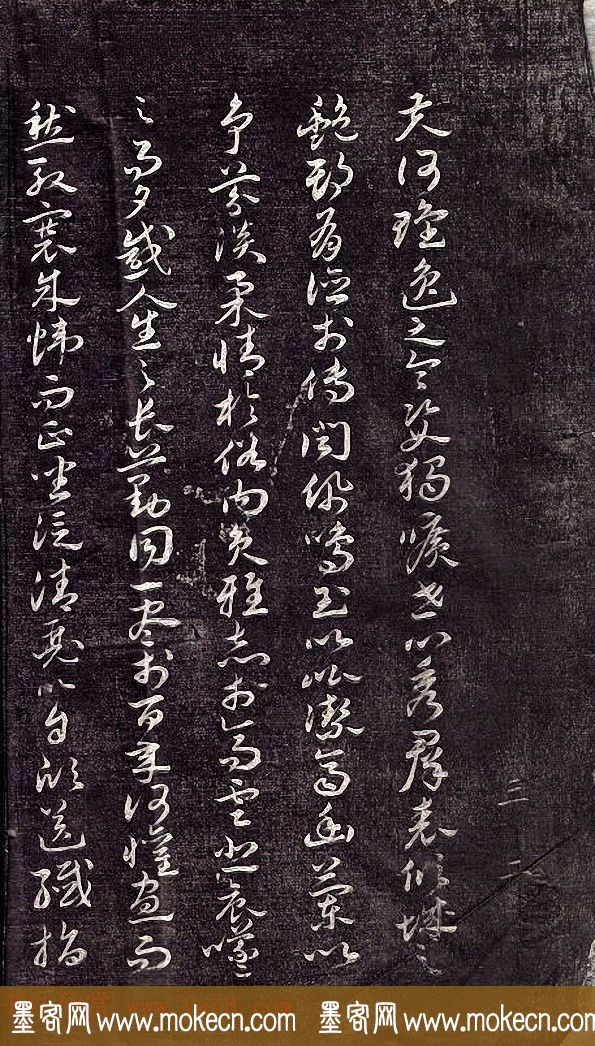 夫何瓌逸之令姿獨曠世以秀羣表傾城之
艷期有德於傳聞佩鳴玉以比潔齊幽蘭以
争芬淡柔情於俗内負雅志於高雲悲晨曦
之易夕感人生之長勤同一盡於百年何懽寡而
愁殷褰朱幃而正坐泛清瑟以自欣送纖指
三 二
墨客网 www.mokecn.com 墨客网 www.mokecn.com